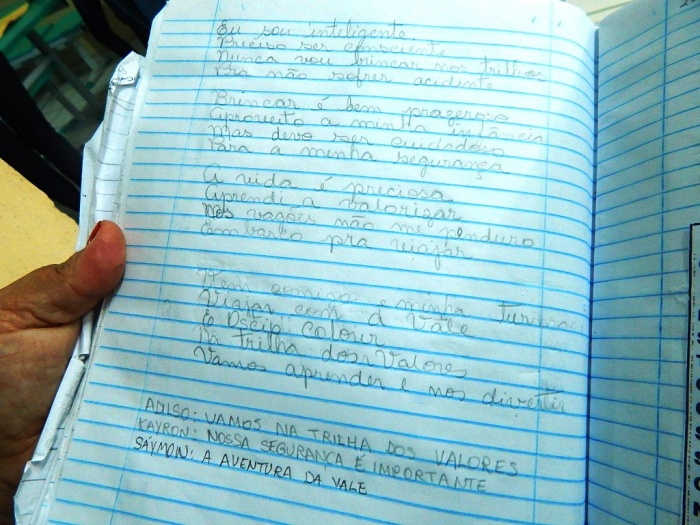 Eu sou inteligente
Preciso ser consciente
Nunca vou brincar nos trilhos
Pra não sofrer acidente
Brincar é bem prazeroso
Aproveito a minha infância
Mas devo ser cuidadoso
Para a minha segurança
A vida é preciosa
Aprendi a valorizar
Nos vagões não me penduro
Embarco pra viajar
Vem comigo e minha turma
Viajar com a Vale
E Decip Colorir
Na trilha dos Valores
Vamos aprender e nos divertir
ADILSO: VAMOS NA TRILHA DOS VALORES
KAYRON: NOSSA SEGURANÇA É IMPORTANTE
SÁYMON: A AVENTURA DA VALE